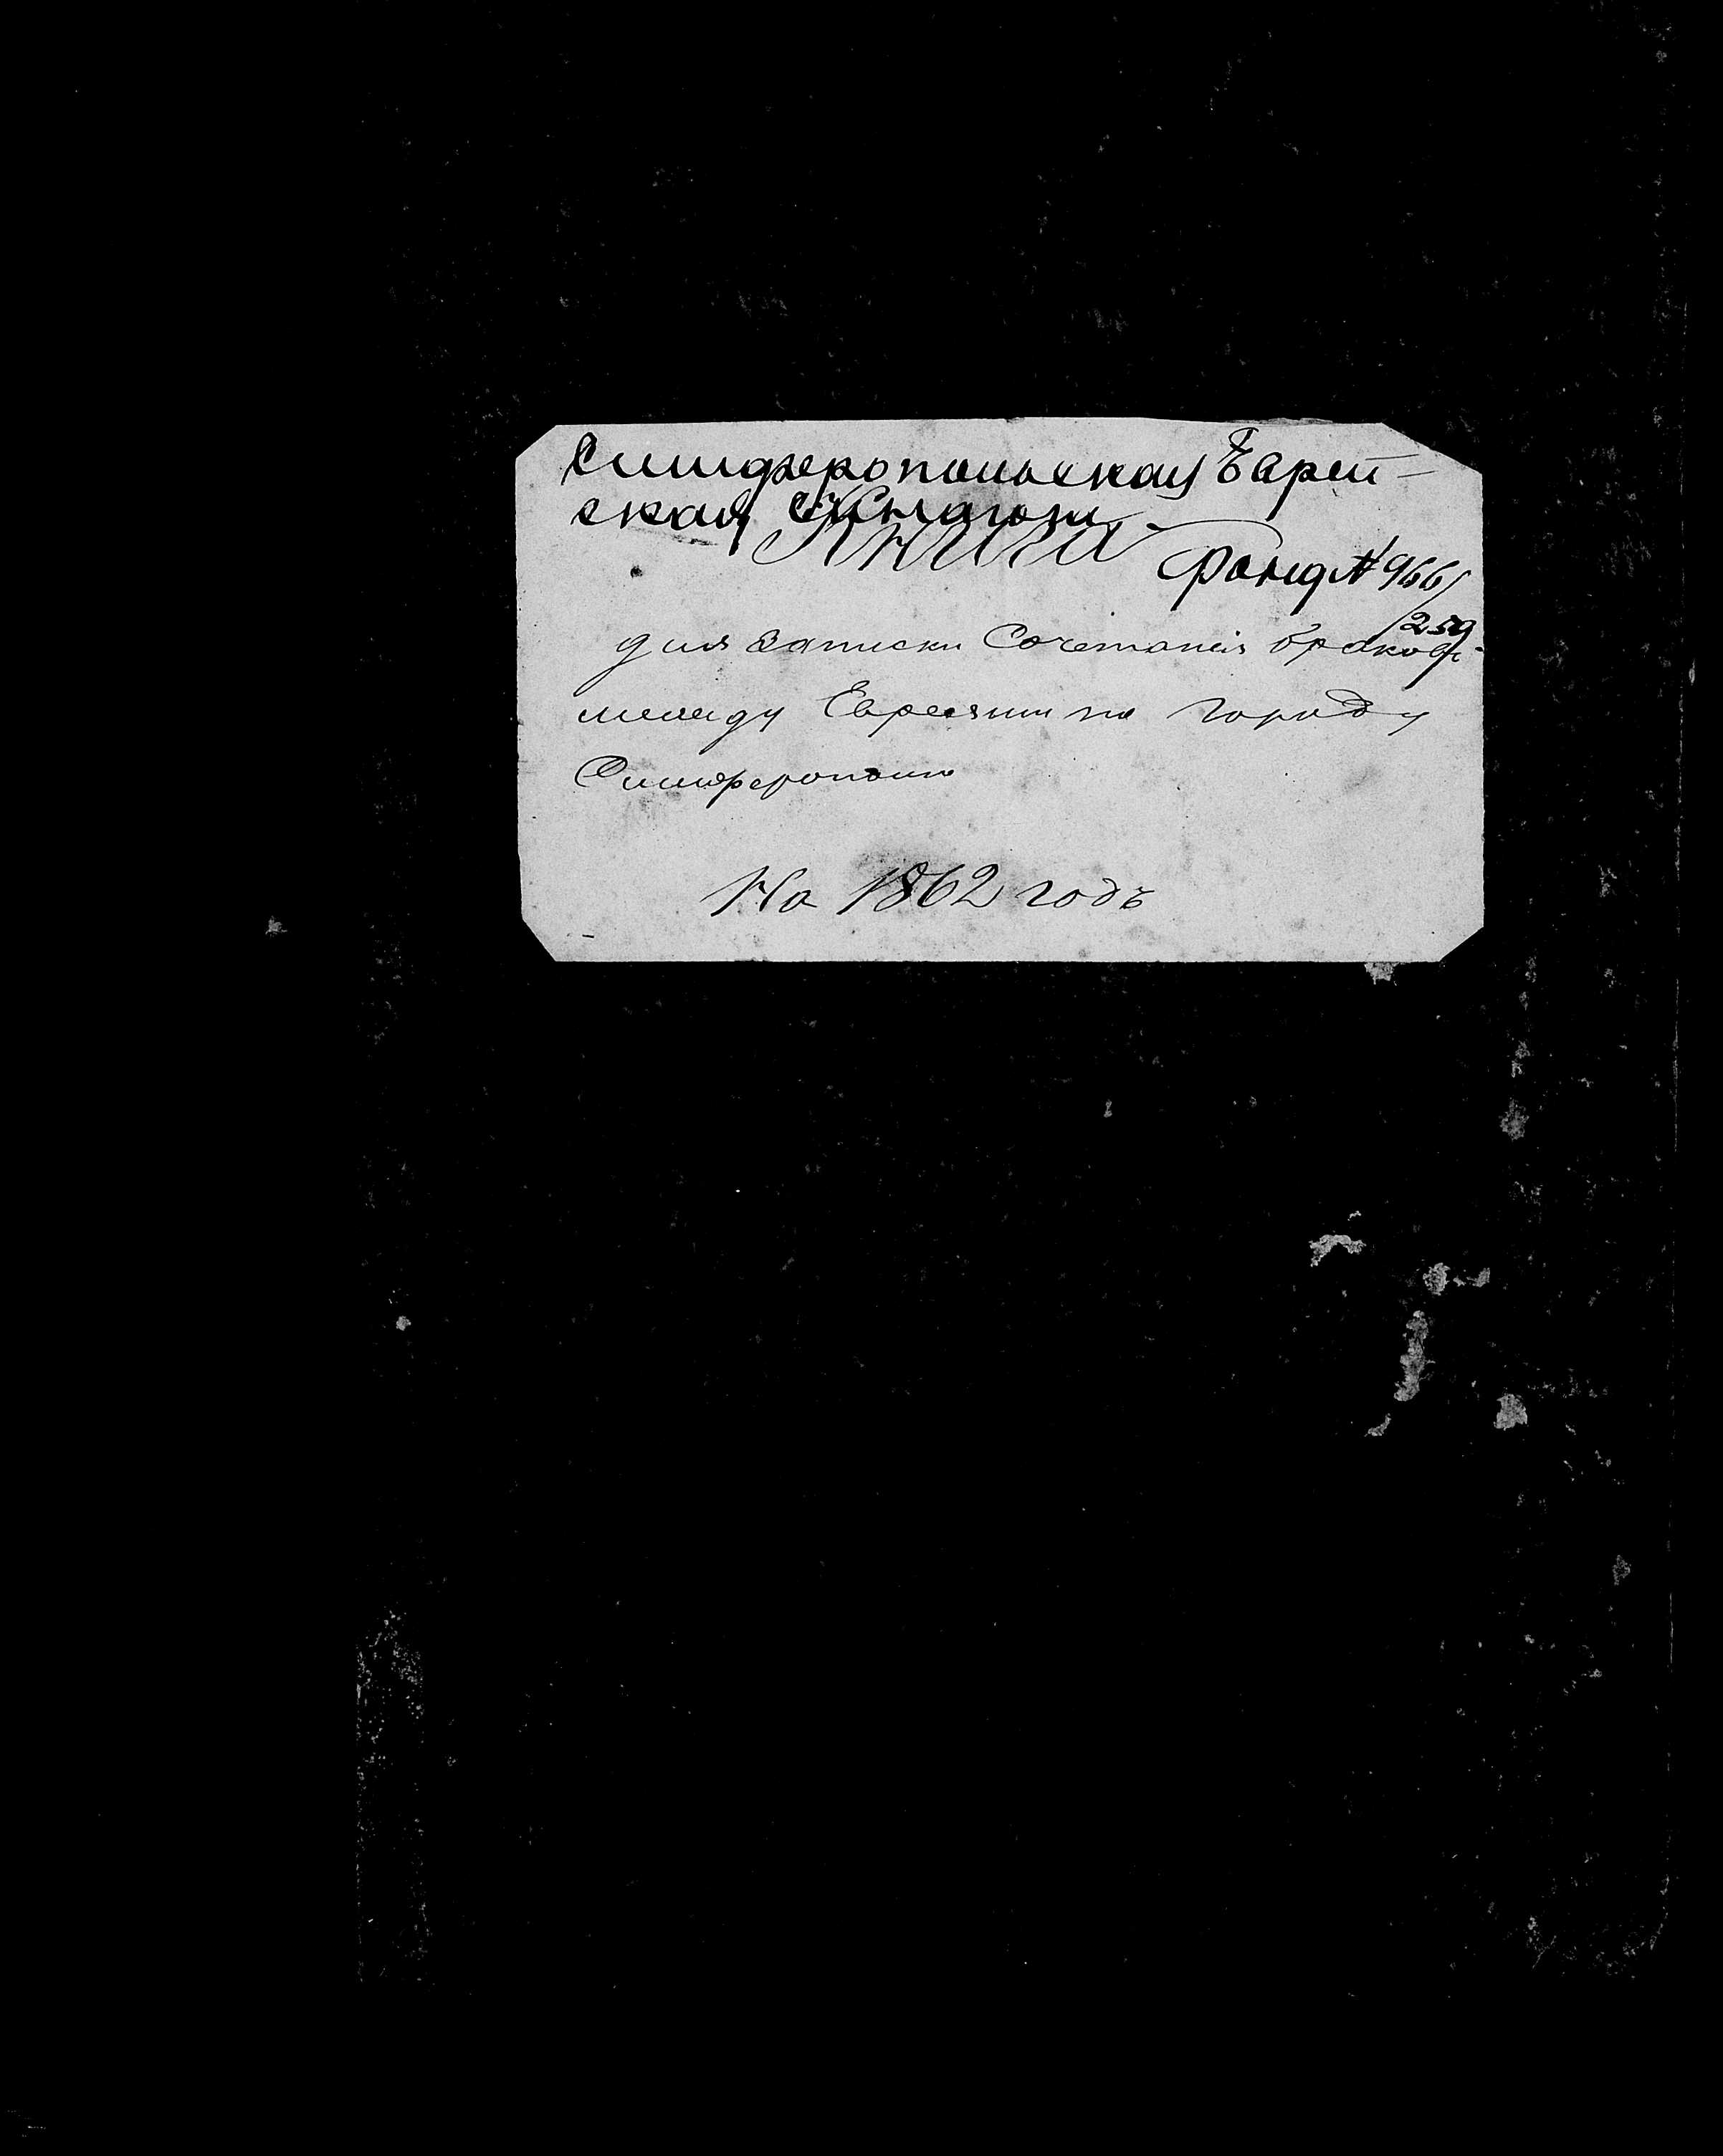 Симферопольская Еврей-
ская Синагога.
Книга
Фонд № 966/
259
для записки Сочетанія браковъ
между Евреями по городу
Симферополю
На 1862 годъ